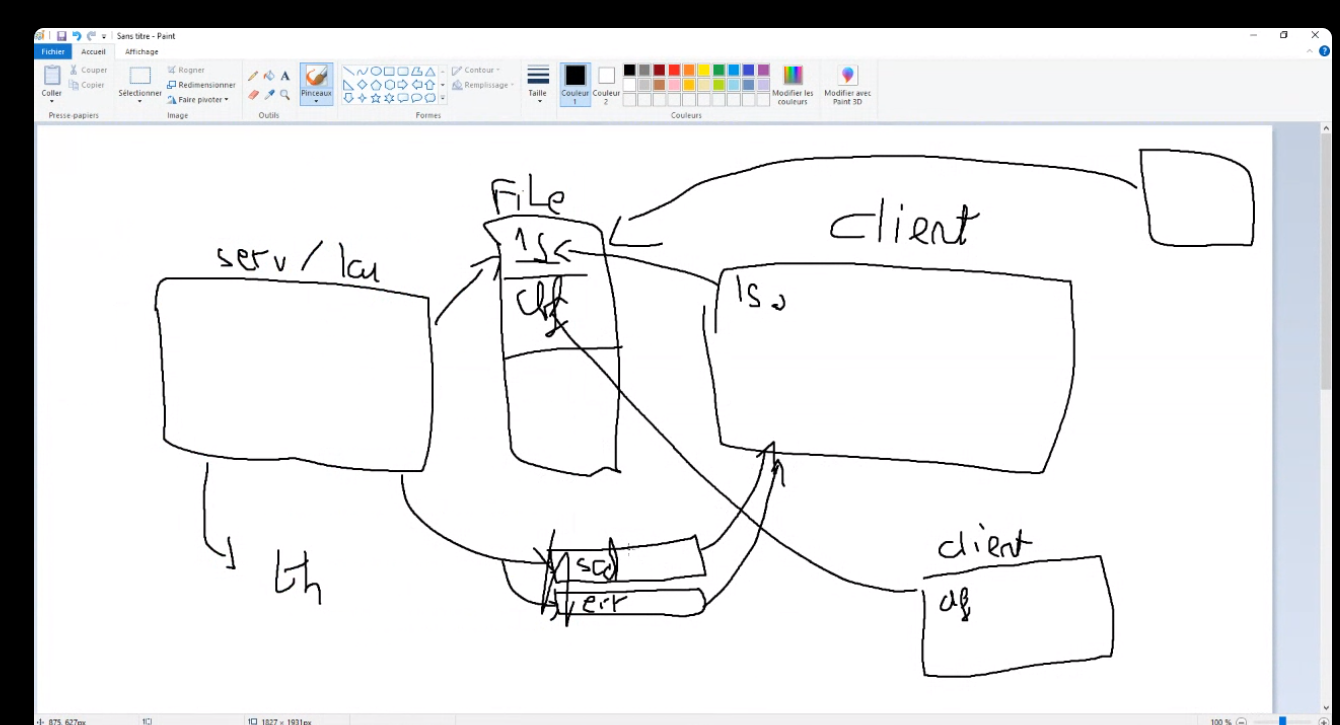 Sans titre - Paint
Fichier Accueil Affichage
Coller
Couper
Copier
Presse-papiers
Sélectionner
Rogner
Redimensionner
Faire pivoter
Image
Outils
Pinceaux
Contour
Remplissage
Formes
Taille
Couleur 1
Couleur 2
Modifier les couleurs
Couleurs
Modifier avec Paint 3D
File
client
serv /
ls
err
client
df
875, 627px
1827 × 1931px
100 %